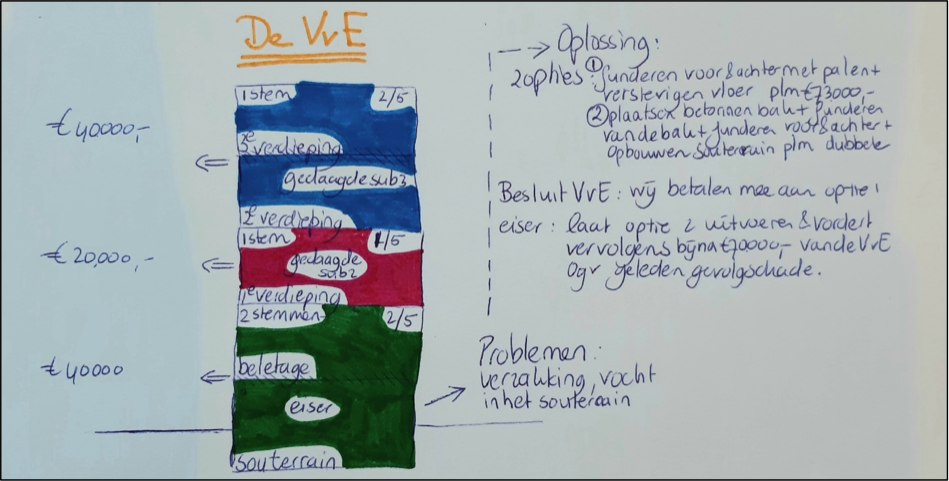 De VvE
€ 40000,-
€ 20,000,-
€ 40000
1 stem 2/5
3e verdieping
gedaagde sub 3
2e verdieping
1 stem 1/5
gedaagde
sub2
1e verdieping
2 stemmen 2/5
beletage
eiser
souterrain
Oplossing:
2 opties: ① funderen voor & achter met palen +
verstevigen vloer plm €73000,-
② plaatsen betonnen bak + funderen
van de bak + funderen voor & achter +
opbouwen souterrain plm dubbele
Besluit VvE: wij betalen mee aan optie 1
eiser: laat optie 2 uitvoeren & vordert
vervolgens bijna €70000,- van de VvE
ogv geleden gevolgschade.
Problemen:
verzakking, vocht
in het souterrain